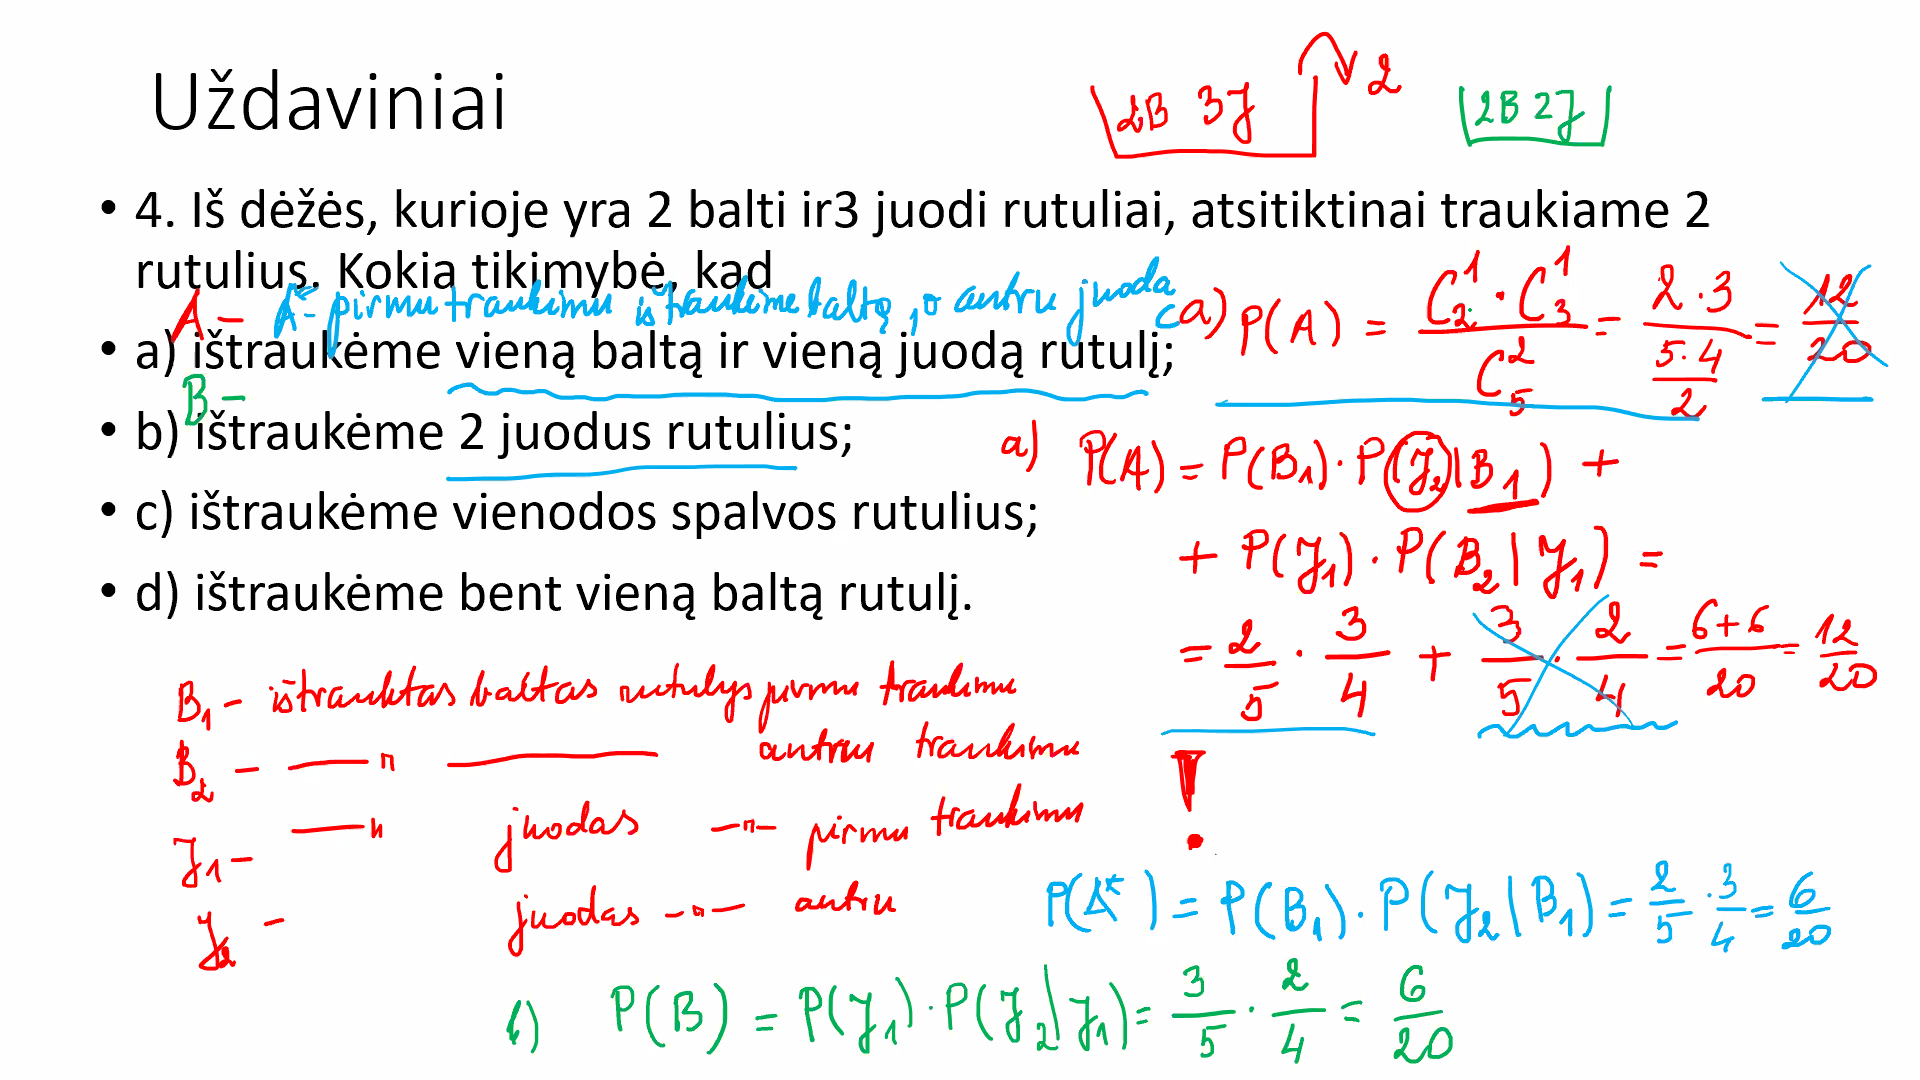 Uždaviniai
2B 3J 2
2B 2J
• 4. Iš dėžės, kurioje yra 2 balti ir3 juodi rutuliai, atsitiktinai traukiame 2
rutulius. Kokia tikimybė, kad
A – A* - pirmu traukimu ištraukime baltą, o antru juodą
• a) ištraukėme vieną baltą ir vieną juodą rutulį;
B –
• b) ištraukėme 2 juodus rutulius;
• c) ištraukėme vienodos spalvos rutulius;
• d) ištraukėme bent vieną baltą rutulį.
a) P(A) = C₂¹ · C₃¹ / C₅² = 2 · 3 / (5·4 / 2) = 12/20
a) P(A) = P(B₁) · P(J₂|B₁) +
+ P(J₁) · P(B₂|J₁) =
= 2/5 · 3/4 + 3/5 · 2/4 = 6+6/20 = 12/20
!
B₁ – ištrauktas baltas rutulys pirmu traukimu
B₂ – —— " —— antru traukimu
J₁ – —— " juodas – " – pirmu traukimu
J₂ – juodas – " – antru
P(A*) = P(B₁) · P(J₂|B₁) = 2/5 · 3/4 = 6/20
b) P(B) = P(J₁) · P(J₂|J₁) = 3/5 · 2/4 = 6/20